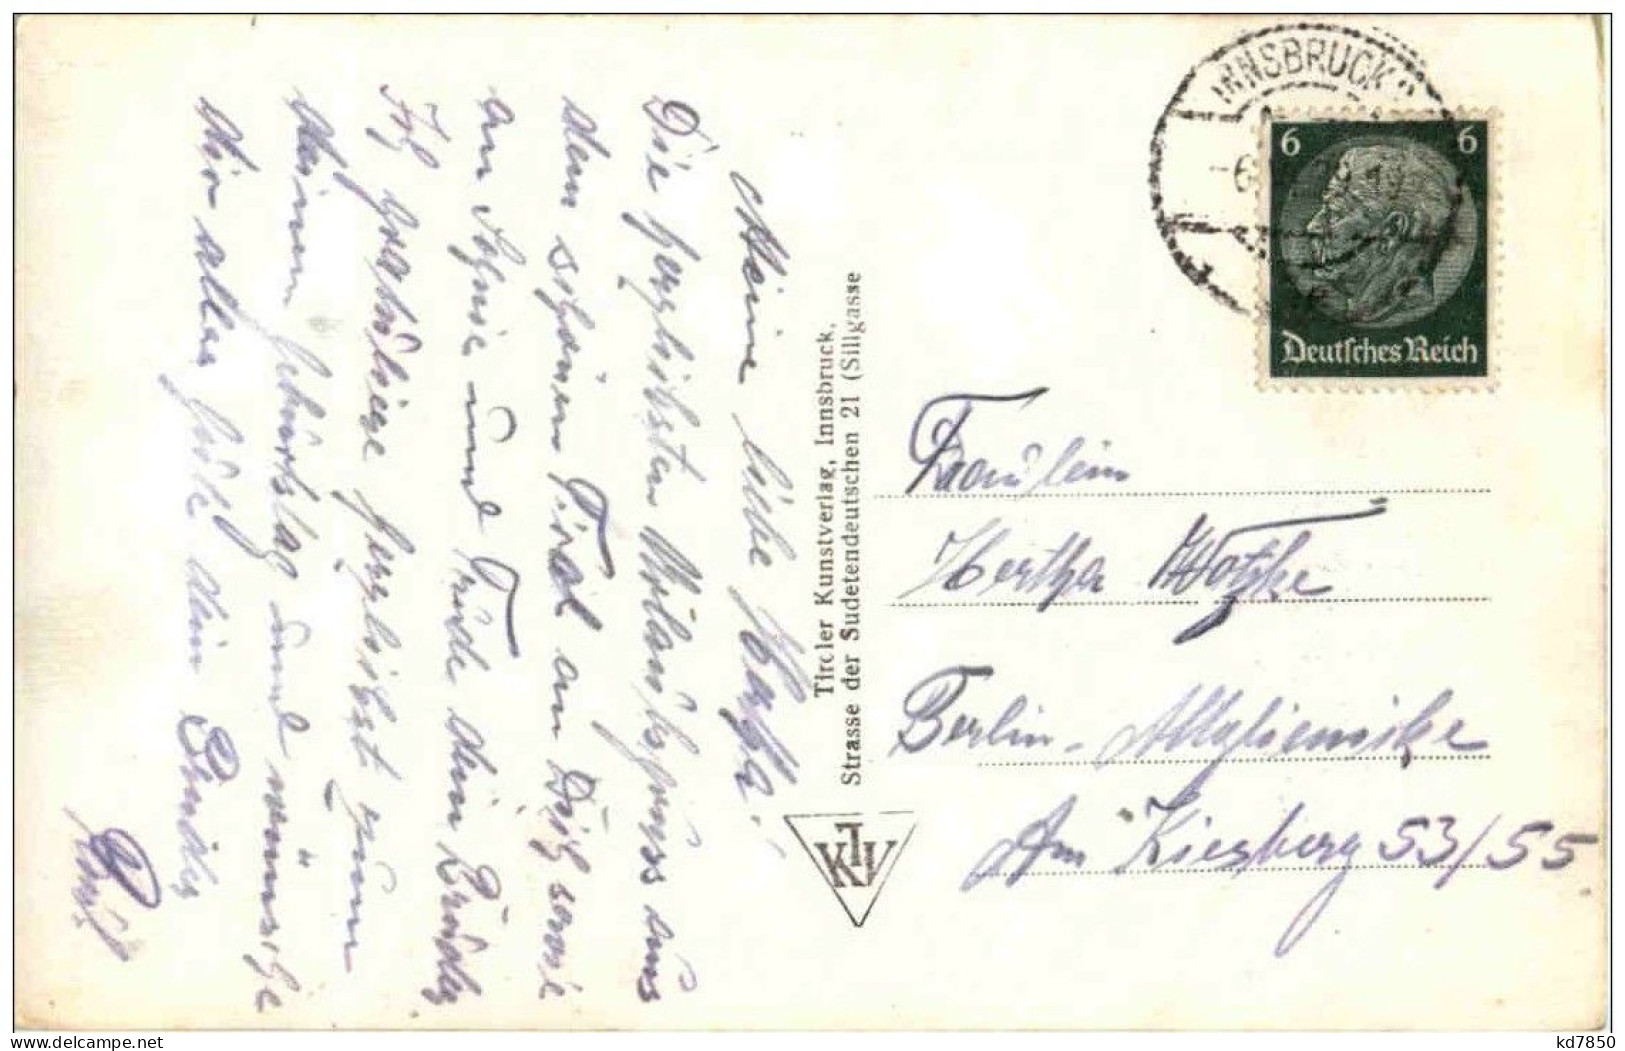 Meine liebe Hertha.
Die herzlichsten Urlaubsgrüss aus
dem schönen Tirol an Dich sowie
an Schnie und Trude dein Bruder
Ich gratuliere herzlichst zum
deinen Geburtstag und wünsche
dir alles gute dein Bruder
Tiroler Kunstverlag, Innsbruck,
Strasse der Sudetendeutschen 21 (Sillgasse
KTV
INNSBRUCK
6 6
Deutsches Reich
Fräulein
Hertha Wotzke
Berlin-Altglienicke
Am Kiesberg 53/55
Delcampe.net
kd7850